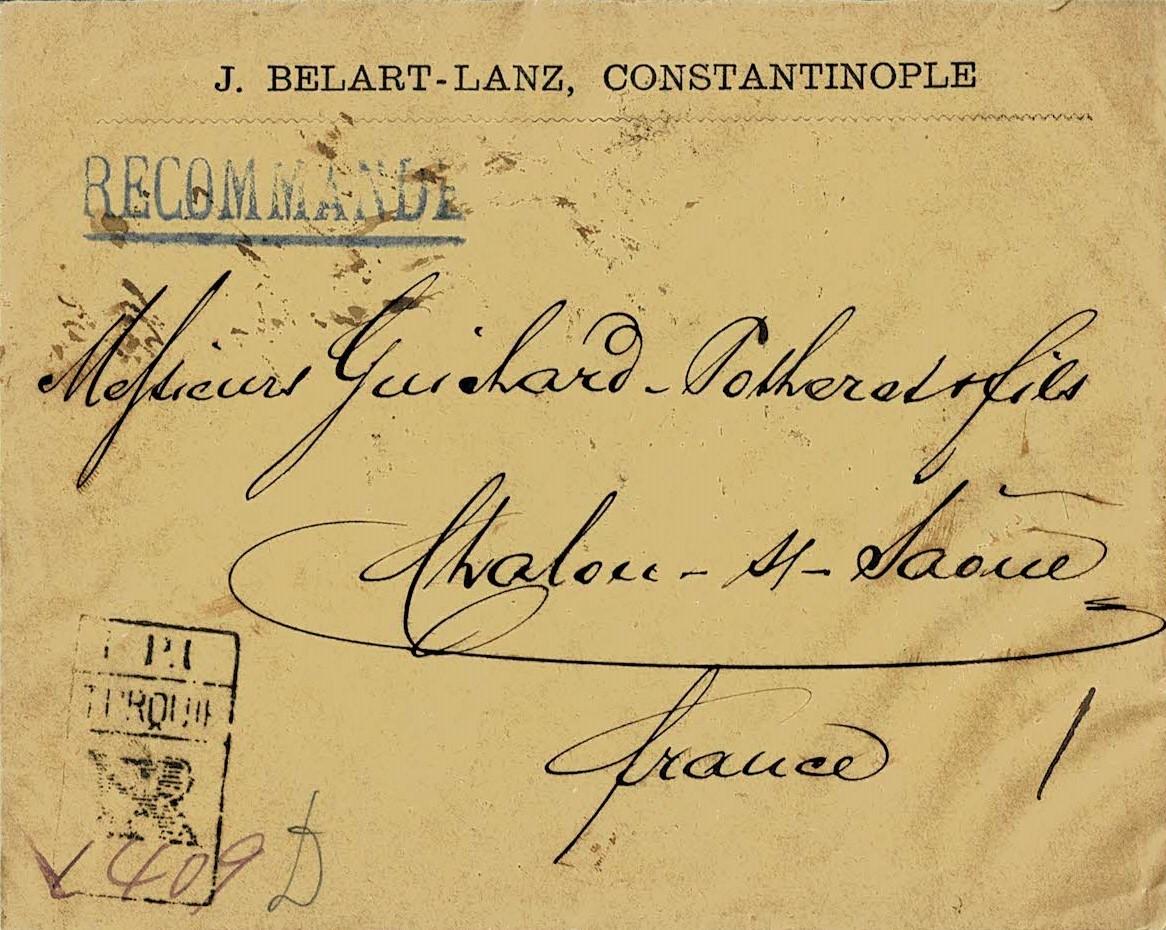 J. BELART-LANZ, CONSTANTINOPLE
RECOMMANDE
Messieurs Guichard-Potheret & fils
Chalon-s/-Saône
France
TURQUIE
409
D